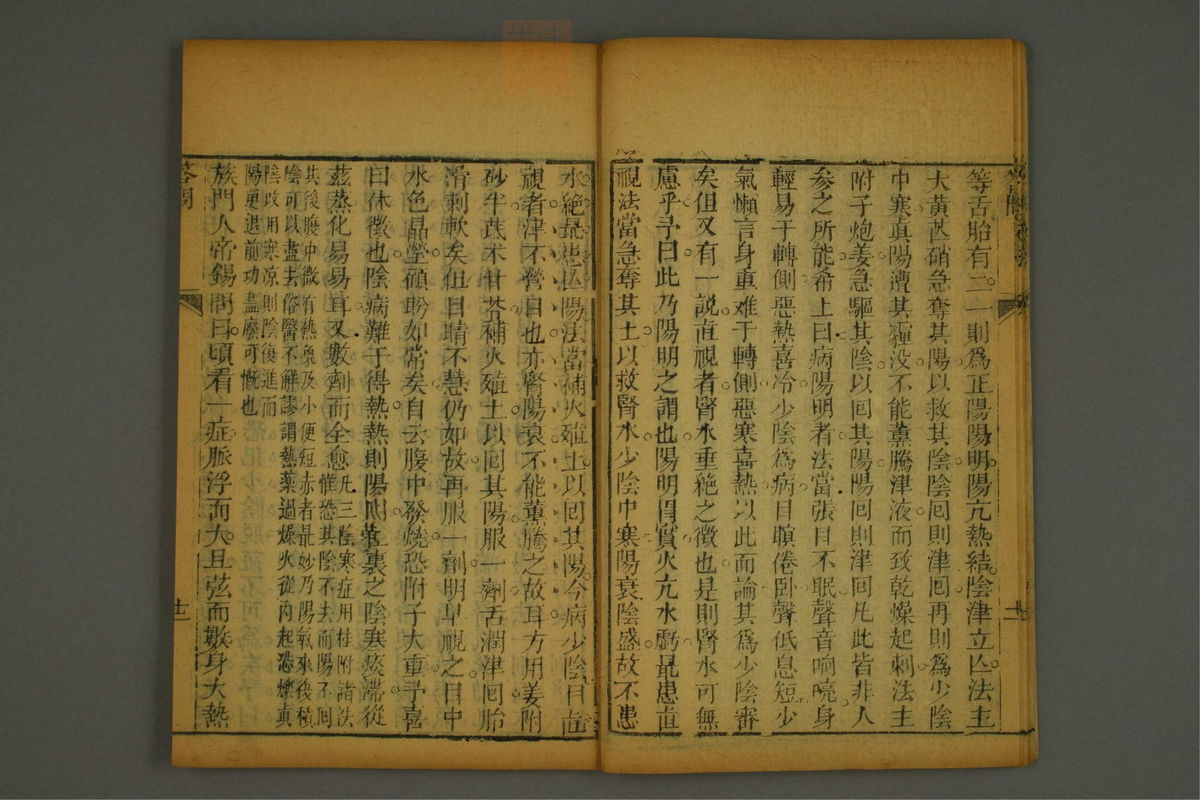 等舌胎有二一則為正陽陽明陽亢熱結陰津立亾法主
大黃芒硝急奪其陽以救其陰陰囘則津囘再則為少陰
中寒真陽遭其霾没不能薰騰津液而致乾燥起刺法主
附子炮姜急驅其陰以囘其陽陽囘則津囘凡此皆非人
參之所能希上曰病陽明者法當張目不眠聲音响喨身
輕易于轉側惡熱喜冷少陰為病目瞑倦卧聲低息短少
氣懶言身重难于轉側惡寒喜熱以此而論其為少陰審
矣但又有一說直視者腎水垂絶之徵也是則腎水可無
慮乎予曰此乃陽明之謂也陽明胃實火亢水虧最患直
視法當急奪其土以救腎水少陰中寒陽衰陰盛故不患
水絶最患亾陽法當補火殖土以囘其陽今病少陰目直
視者津不營目也亦腎陽衰不能薰騰之故耳方用姜附
砂半茋术甘芥補火殖土以囘其陽服一劑舌潤津囘胎
滑刺軟矣但目睛不慧仍如故再服一劑明早視之目中
水色晶瑩顧盼如常矣自云腹中發燒恐附子太重予喜
曰休徵也陰病難于得熱熱則陽囘裏之陰寒痰滯從
茲蒸化易易耳又數劑而全愈凡三陰寒症用桂附諸法
其後腹中微有熱意及小便短赤者最妙乃陽氣來復積
陰可以盡去俗醫不解謬謂熱藥過燥火從內起恐燥真
陰改用寒凉則陰復進而
陽更退前功盡廢可慨也
族門人帝錫問曰頃看一症脈浮而大且弦而數身大熱